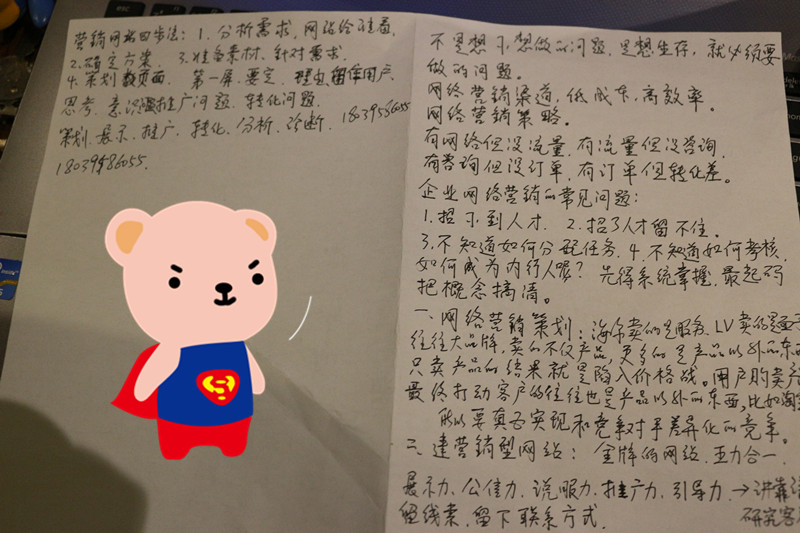 营销网站四步法：1. 分析需求，网站给谁看，
2.确定方案． 3.准备素材，针对需求．
4. 策划教页面． 第一屏，要定，理由留住用户、
思考，意识湿推广问题，转化问题．
策划、展示、推广、转化、分析、诊断． 18039586055
18039586055．
不是想不想做的问题．是想生存，就必须要
做的问题。
网络营销渠道，低成本，高效率。
网络营销策略。
有网络但没流量，有流量但没咨询，
有咨询但没订单，有订单但转化差。
企业网络营销的常见问题：
1. 招不到人才． 2. 招了人才留不住．
3.不知道如何分配任务．4.不知道如何考核．
如何成为内行人呢？先得系统掌握，最起码
把概念搞清。
一．网络营销策划：海底卖的是服务．LV卖的是面子
往往大品牌，卖的不仅产品，更多的是产品以外的东西
只卖产品的结果就是陷入价格战。用户购买产
最终打动客户的往往也是产品以外的东西，比如淘宝
所以要真正实现和竞争对手差异化的竞争。
二．建营销型网站： 金牌的网站．五力合一．
展示力、公信力、说服力、推广力、引导力．→讲靠
留线索．留下联系方式． 研究客